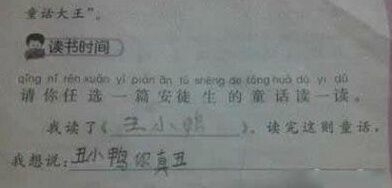 童话大王”。
读书时间
qǐng nǐ rèn xuǎn yì piān ān tú shēng de tóng huà dú yì dú
请你任选一篇安徒生的童话读一读。
我读了(丑小鸭)。读完这则童话，
我想说：丑小鸭你真丑